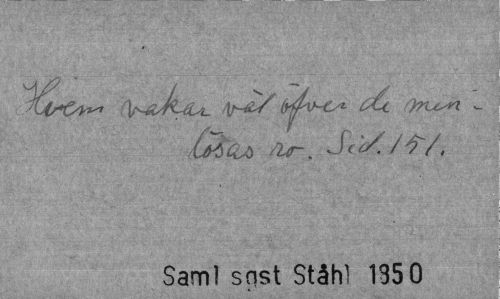 Hvem vakar väl öfver de men-
lösas ro. Sid. 151.
Saml sgst Ståhl 1850